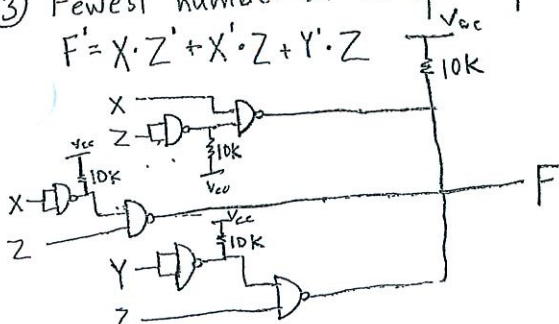 ③ Fewest number
F' = X·Z' + X'·Z + Y'·Z
Vcc
10K
X
Z
10K
Vcc
Vcc
10K
X
Z
Vcc
10K
Y
Z
F